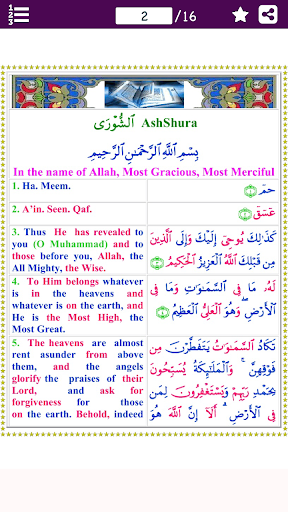 1
2
3
2 /16
ٱلشُّورَى AshShura
بِسْمِ ٱللَّهِ ٱلرَّحْمَٰنِ ٱلرَّحِيمِ
In the name of Allah, Most Gracious, Most Merciful
1. Ha. Meem.
حمٓ ﴿١﴾
2. A'in. Seen. Qaf.
عٓسٓقٓ ﴿٢﴾
3. Thus He has revealed to
you (O Muhammad) and to
those before you, Allah, the
All Mighty, the Wise.
كَذَٰلِكَ يُوحِىٓ إِلَيْكَ وَإِلَى ٱلَّذِينَ
مِن قَبْلِكَ ٱللَّهُ ٱلْعَزِيزُ ٱلْحَكِيمُ ﴿٣﴾
4. To Him belongs whatever
is in the heavens and
whatever is on the earth, and
He is the Most High, the
Most Great.
لَهُۥ مَا فِى ٱلسَّمَٰوَٰتِ وَمَا فِى
ٱلْأَرْضِ ۖ وَهُوَ ٱلْعَلِىُّ ٱلْعَظِيمُ ﴿٤﴾
5. The heavens are almost
rent asunder from above
them, and the angels
glorify the praises of their
Lord, and ask for
forgiveness for those
on the earth. Behold, indeed
تَكَادُ ٱلسَّمَٰوَٰتُ يَتَفَطَّرْنَ مِن
فَوْقِهِنَّ ۚ وَٱلْمَلَٰٓئِكَةُ يُسَبِّحُونَ
بِحَمْدِ رَبِّهِمْ وَيَسْتَغْفِرُونَ لِمَن
فِى ٱلْأَرْضِ ۗ أَلَآ إِنَّ ٱللَّهَ هُوَ